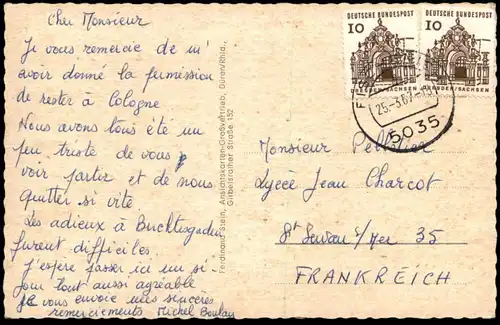 Cher Monsieur
Je vous remercie de m'
avoir donné la permission
de rester à Cologne
Nous avons tous été un
peu triste de vous
voir partir et de nous
quitter si vite
Les adieux à
furent difficiles.
J'espère passer ici un si
jour tout aussi agréable
Je vous envoie mes sincères
remerciements Michel
Ferdinand Stein, Ansichtskarten-Großvertrieb, Düren/Rhld.,
Gürzenicher Straße 152
DEUTSCHE BUNDESPOST
10
DRESDEN/SACHSEN
DEUTSCHE BUNDESPOST
10
DRESDEN/SACHSEN
25.-3.67
5035
Monsieur Pelletier
Lycée Jean Charcot
St Servan s/Mer 35
FRANKREICH